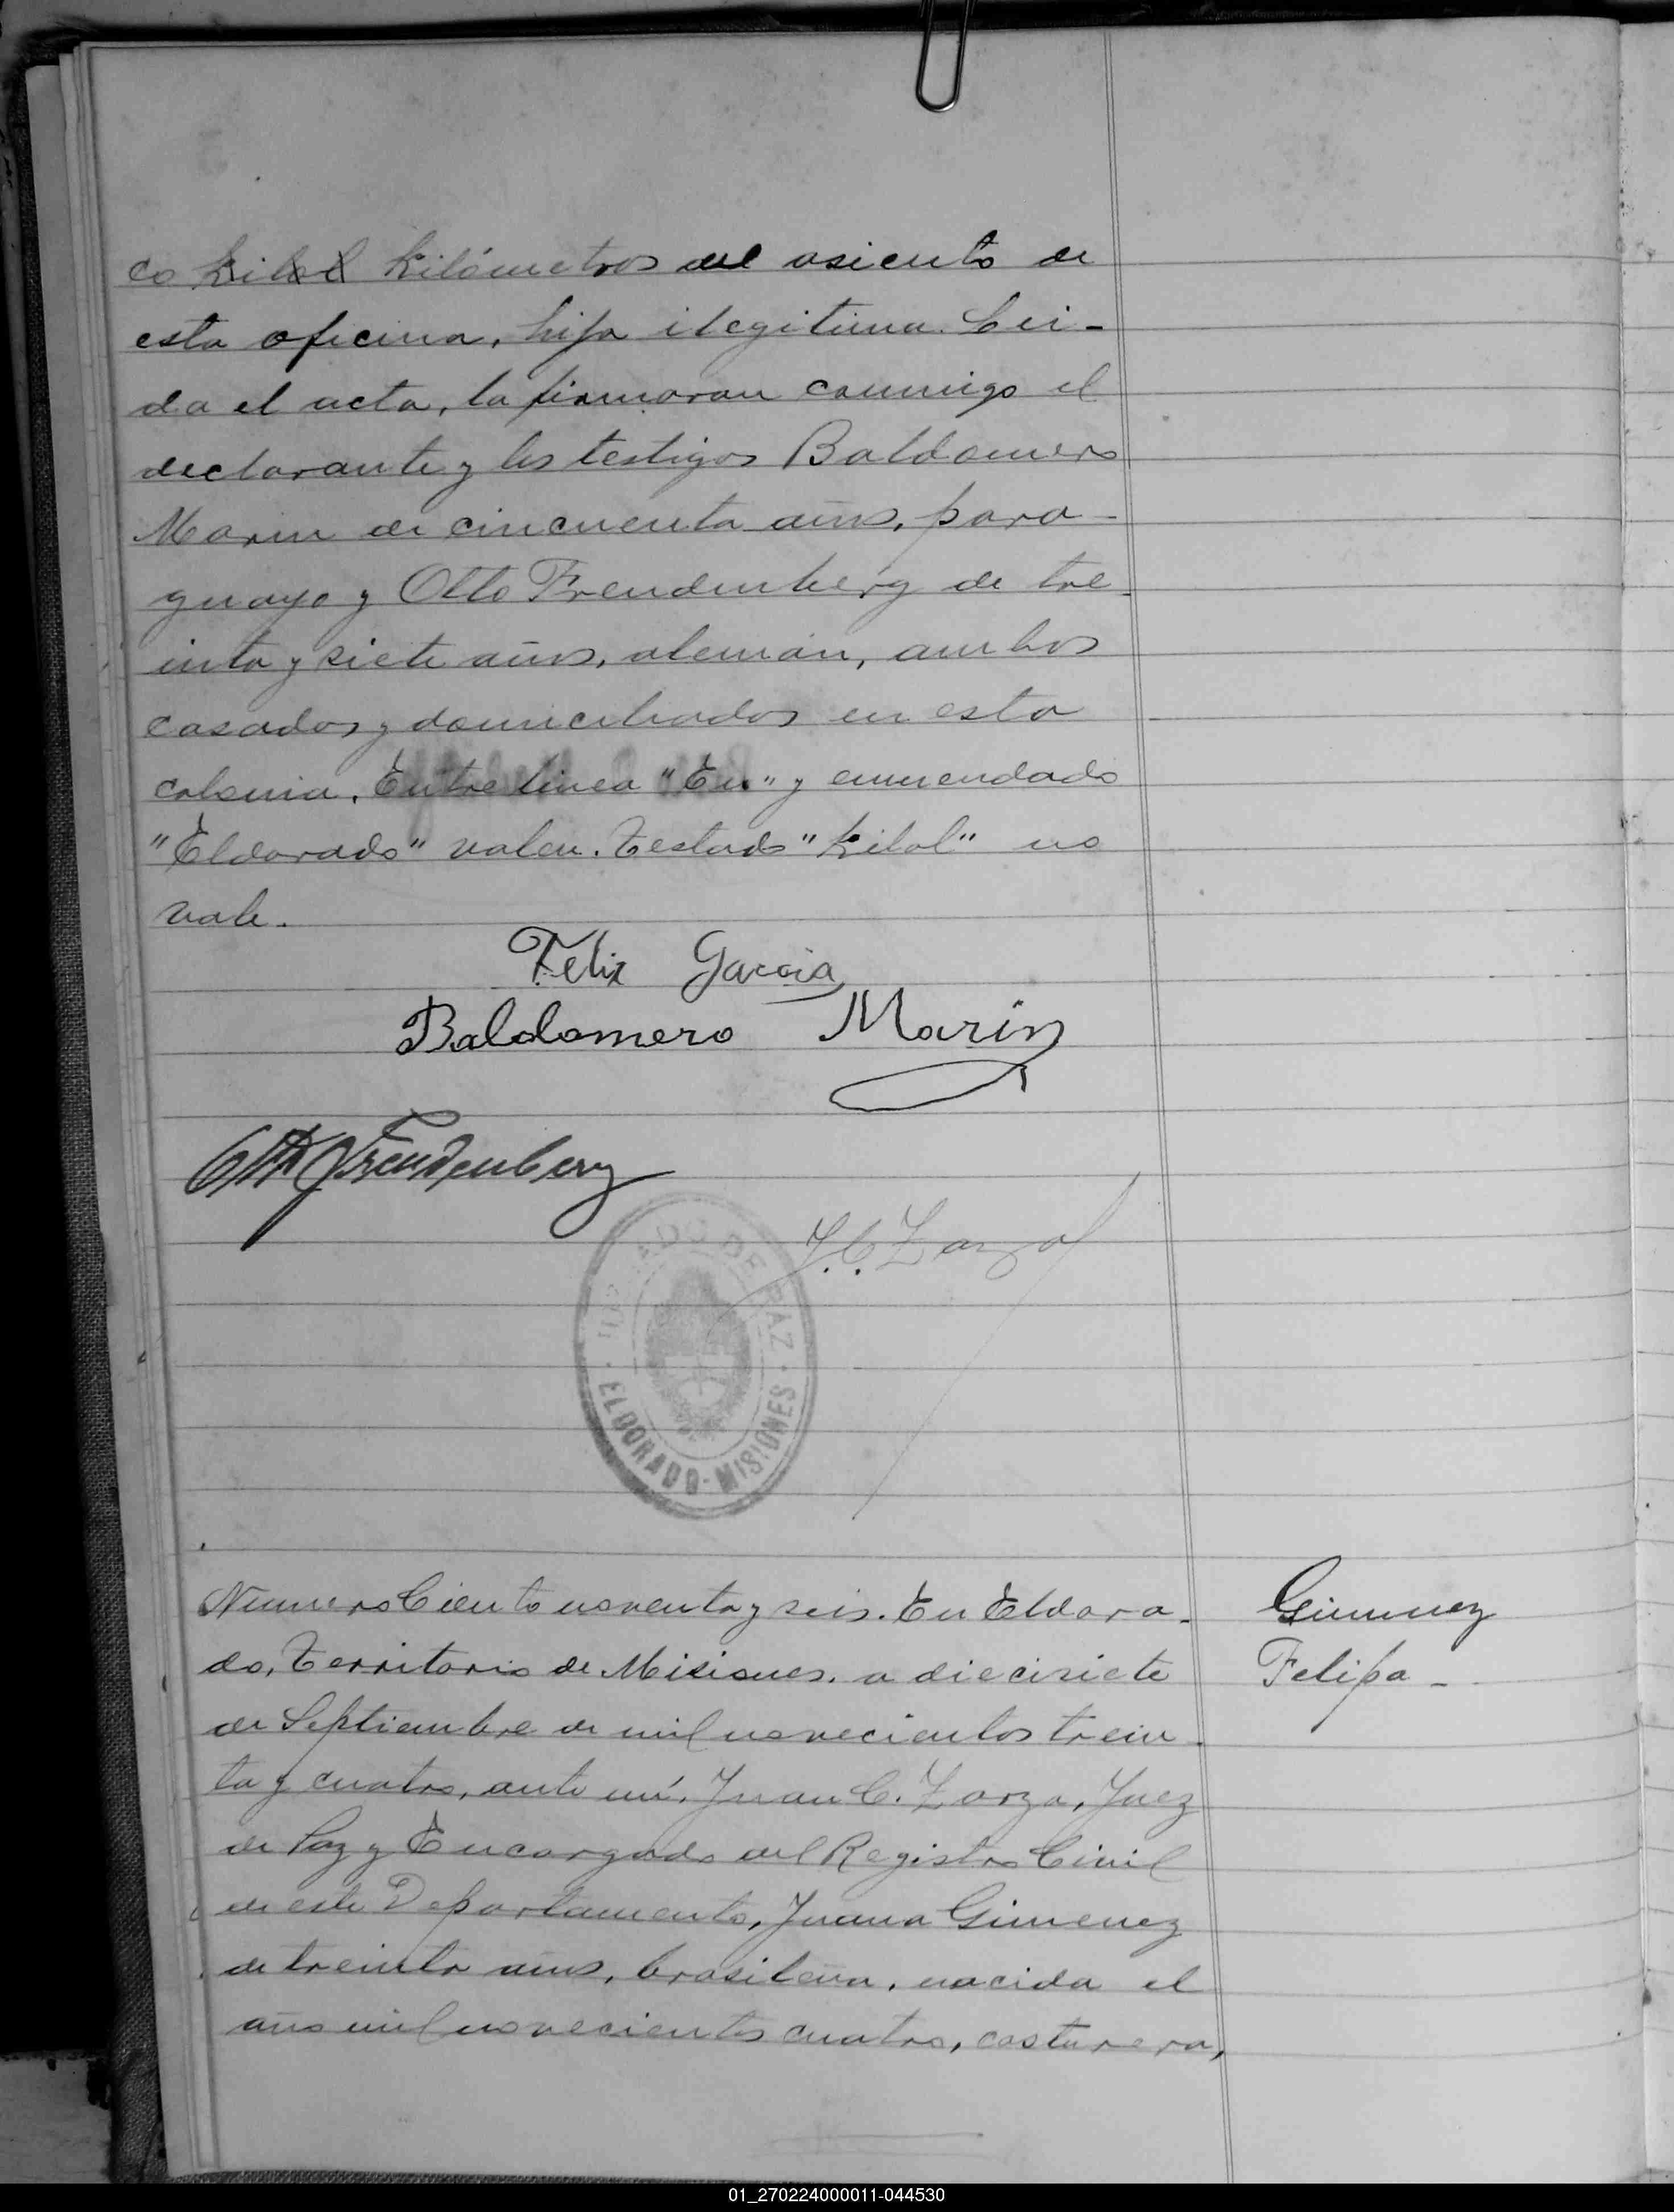 co kilol kilómetros del asiento de
esta oficina, hija ilegitima. Lei-
da el acta, la firmaran conmigo el
declarante y los testigos Baldomero
Marin de cincuenta años, para-
guayo y Otto Freudenberg de tre-
inta y siete años, alemán, ambos
casados y domiciliados en esta
colonia. Entre linea "En" y enmendado
"Eldorado" valen. Testado "kilol" no
vale.
Felix Garcia
Baldomero Marin
Otto Freudenberg
J.C. Zarza
JUZGADO DE PAZ
ELDORADO-MISIONES
Numero Ciento noventa y seis. En Eldora-
do, Territorio de Misiones, a diecisiete
de Septiembre de mil novecientos trein-
ta y cuatro, ante mí, Juan C. Zarza, Juez
de Paz y Encargado del Registro Civil
de este Departamento, Juana Gimenez
de treinta años, brasileña, nacida el
año mil novecientos cuatro, costurera,
Gimenez
Felipa -
01_270224000011-044530